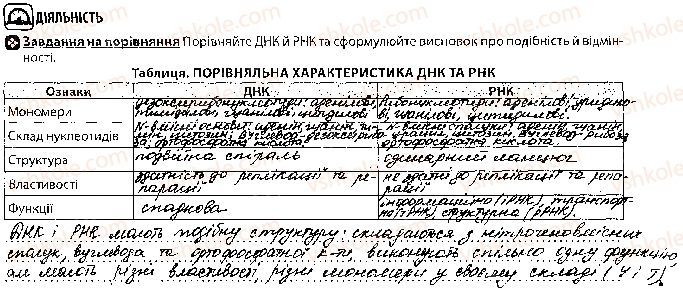 ДІЯЛЬНІСТЬ
Завдання на порівняння Порівняйте ДНК й РНК та сформулюйте висновок про подібність й відмін-
ності.
Таблиця. ПОРІВНЯЛЬНА ХАРАКТЕРИСТИКА ДНК ТА РНК
Ознаки ДНК РНК
Мономери дезоксирибонуклеотиди: аденілові, тимідилові, гуанілові, цитидилові Рибонуклеотиди: аденілові, уридилові, гуанілові, цитидилові
Склад нуклеотидів N-вмісні основи: аденін, гуанін, тимін, цитозин; вуглевод-дезоксирибоза, ортофосфатна кислота N-вмісні сполуки: аденін, гуанін, урацил, цитозин, вуглевод-рибоза, ортофосфатна кислота
Структура подвійна спіраль одинарний ланцюг
Властивості здатність до реплікації та репарації не здатні до реплікації та репарації
Функції спадкова інформаційна (іРНК), транспортна (тРНК), структурна (рРНК).
ДНК і РНК мають подібну структуру: складаються з нітрогеновмісних
сполук, вуглевода та ортофосфатної к-ти, виконують спільно одну функцію,
але мають різні властивості, різні мономери у своєму складі (У і Т).